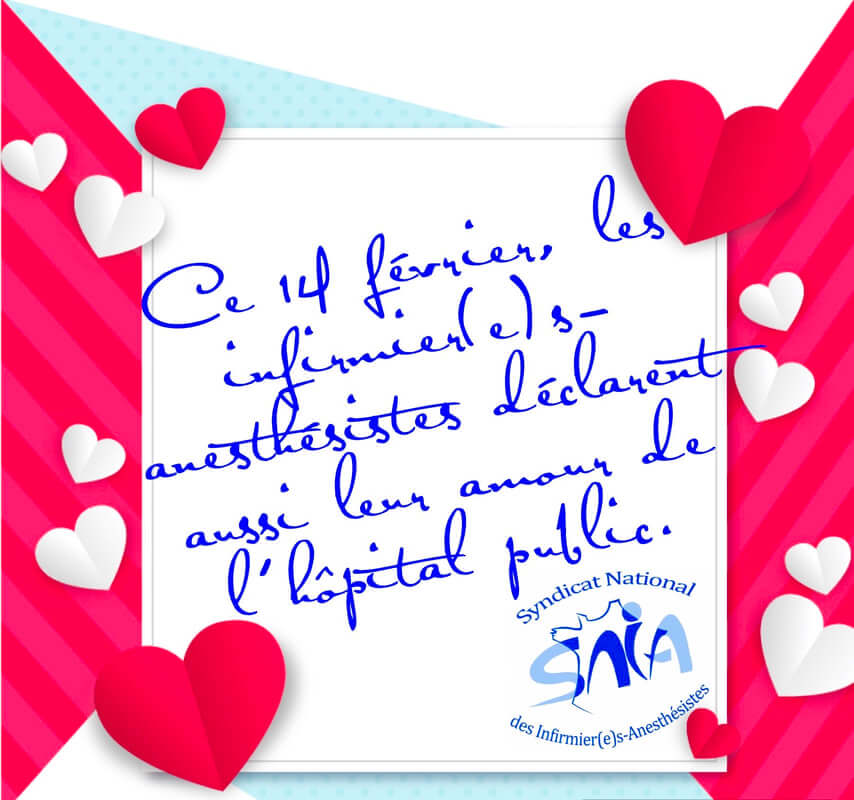 Ce 14 février, les
infirmier(e)s-
anesthésistes déclarent
aussi leur amour de
l'hôpital public.
Syndicat National
SNIA
des Infirmier(e)s-Anesthésistes